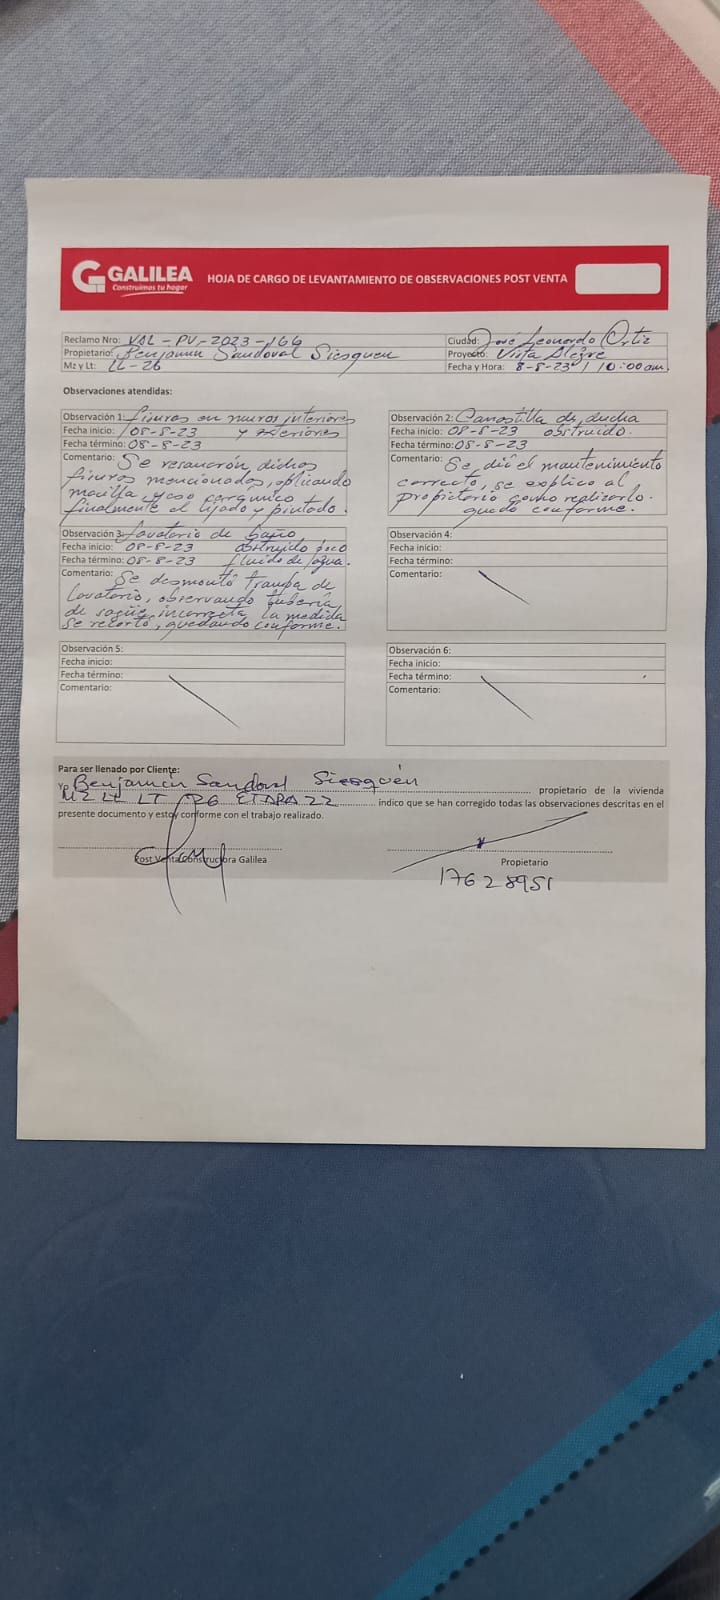 GALILEA
Construimos tu hogar
HOJA DE CARGO DE LEVANTAMIENTO DE OBSERVACIONES POST VENTA
Reclamo Nro: VAL-PV-2023-166
Ciudad: José Leonardo Ortiz
Propietario: Benjamin Sandoval Siesquen
Proyecto: Vista Alegre
Mz y Lt: LL-26
Fecha y Hora: 8-8-23 / 10:00am.
Observaciones atendidas:
Observación 1: fisuras en muros interiores
Fecha inicio: 08-8-23 y exteriores
Fecha término: 08-8-23
Comentario: Se resanarón dichas
fisuras mencionadas, aplicando
masilla, yeso
finalmente el lijado y pintado.
Observación 2: Canastilla de ducha
Fecha inicio: 08-8-23 obstruido.
Fecha término: 08-8-23
Comentario: Se dió el mantenimiento
correcto, se explico al
propietario como realizarlo.
quedó conforme.
Observación 3: lavatorio de baño
Fecha inicio: 08-8-23 obstruido poco
Fecha término: 08-8-23 fluido de agua.
Comentario: Se desmontó trampa de
lavatorio, observando tubería
de incorrecta la medida
se recortó, quedando conforme.
Observación 4:
Fecha inicio:
Fecha término:
Comentario:
Observación 5:
Fecha inicio:
Fecha término:
Comentario:
Observación 6:
Fecha inicio:
Fecha término:
Comentario:
Para ser llenado por Cliente:
Yo Benjamín Sandoval Siesquén propietario de la vivienda
MZ LL LT 26 ETAPA 22 indico que se han corregido todas las observaciones descritas en el
presente documento y estoy conforme con el trabajo realizado.
Post Venta Constructora Galilea
Propietario
17628951